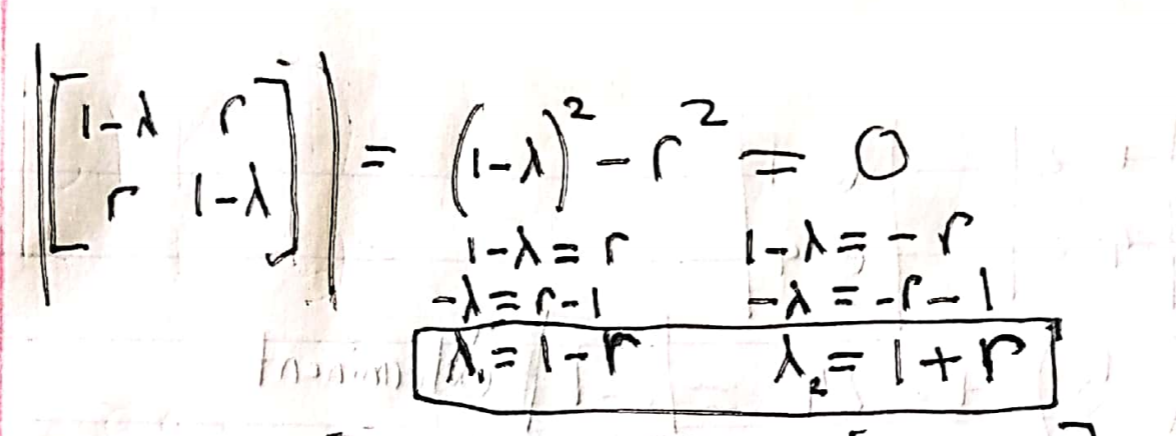 |[1-λ r
r 1-λ]| = (1-λ)² - r² = 0
1-λ = r 1-λ = -r
-λ = r-1 -λ = -r-1
λ₁ = 1-r λ₂ = 1+r